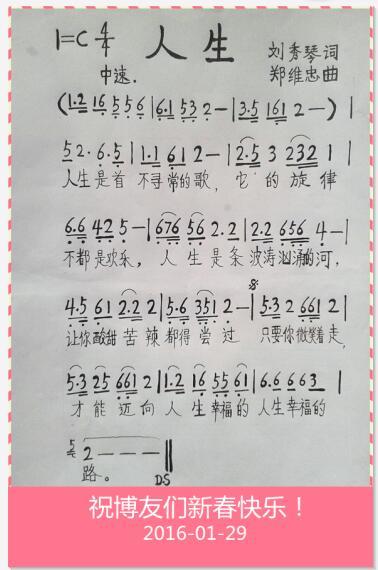 1=C 4/4 人生 刘秀琴词
中速. 郑维忠曲
(1.2 16 5 5 6 | 6.1 53 2 - | 3.5 161 2 - )
5 2 . 6 . 5 | 1.1 61 2 - | 2.5 3 232 1 |
人生是首 不寻常的歌, 它的旋律
6.6 42 5 - | 676 56 2 . 2 | 2.2 656 4 - |
不都是欢乐, 人生是条波涛汹涌的河,
4.5 61 2.2 2 | 5.6 351 2 - | 5.3 2 661 2 |
让你酸甜苦辣都得尝过 只要你微笑着走,
5.3 25 661 2 | 1.2 16 55 61 | 6.6 663 |
才能迈向人生幸福的人生幸福的
5 2 - - - ||
路。 D.S
祝博友们新春快乐！
2016-01-29